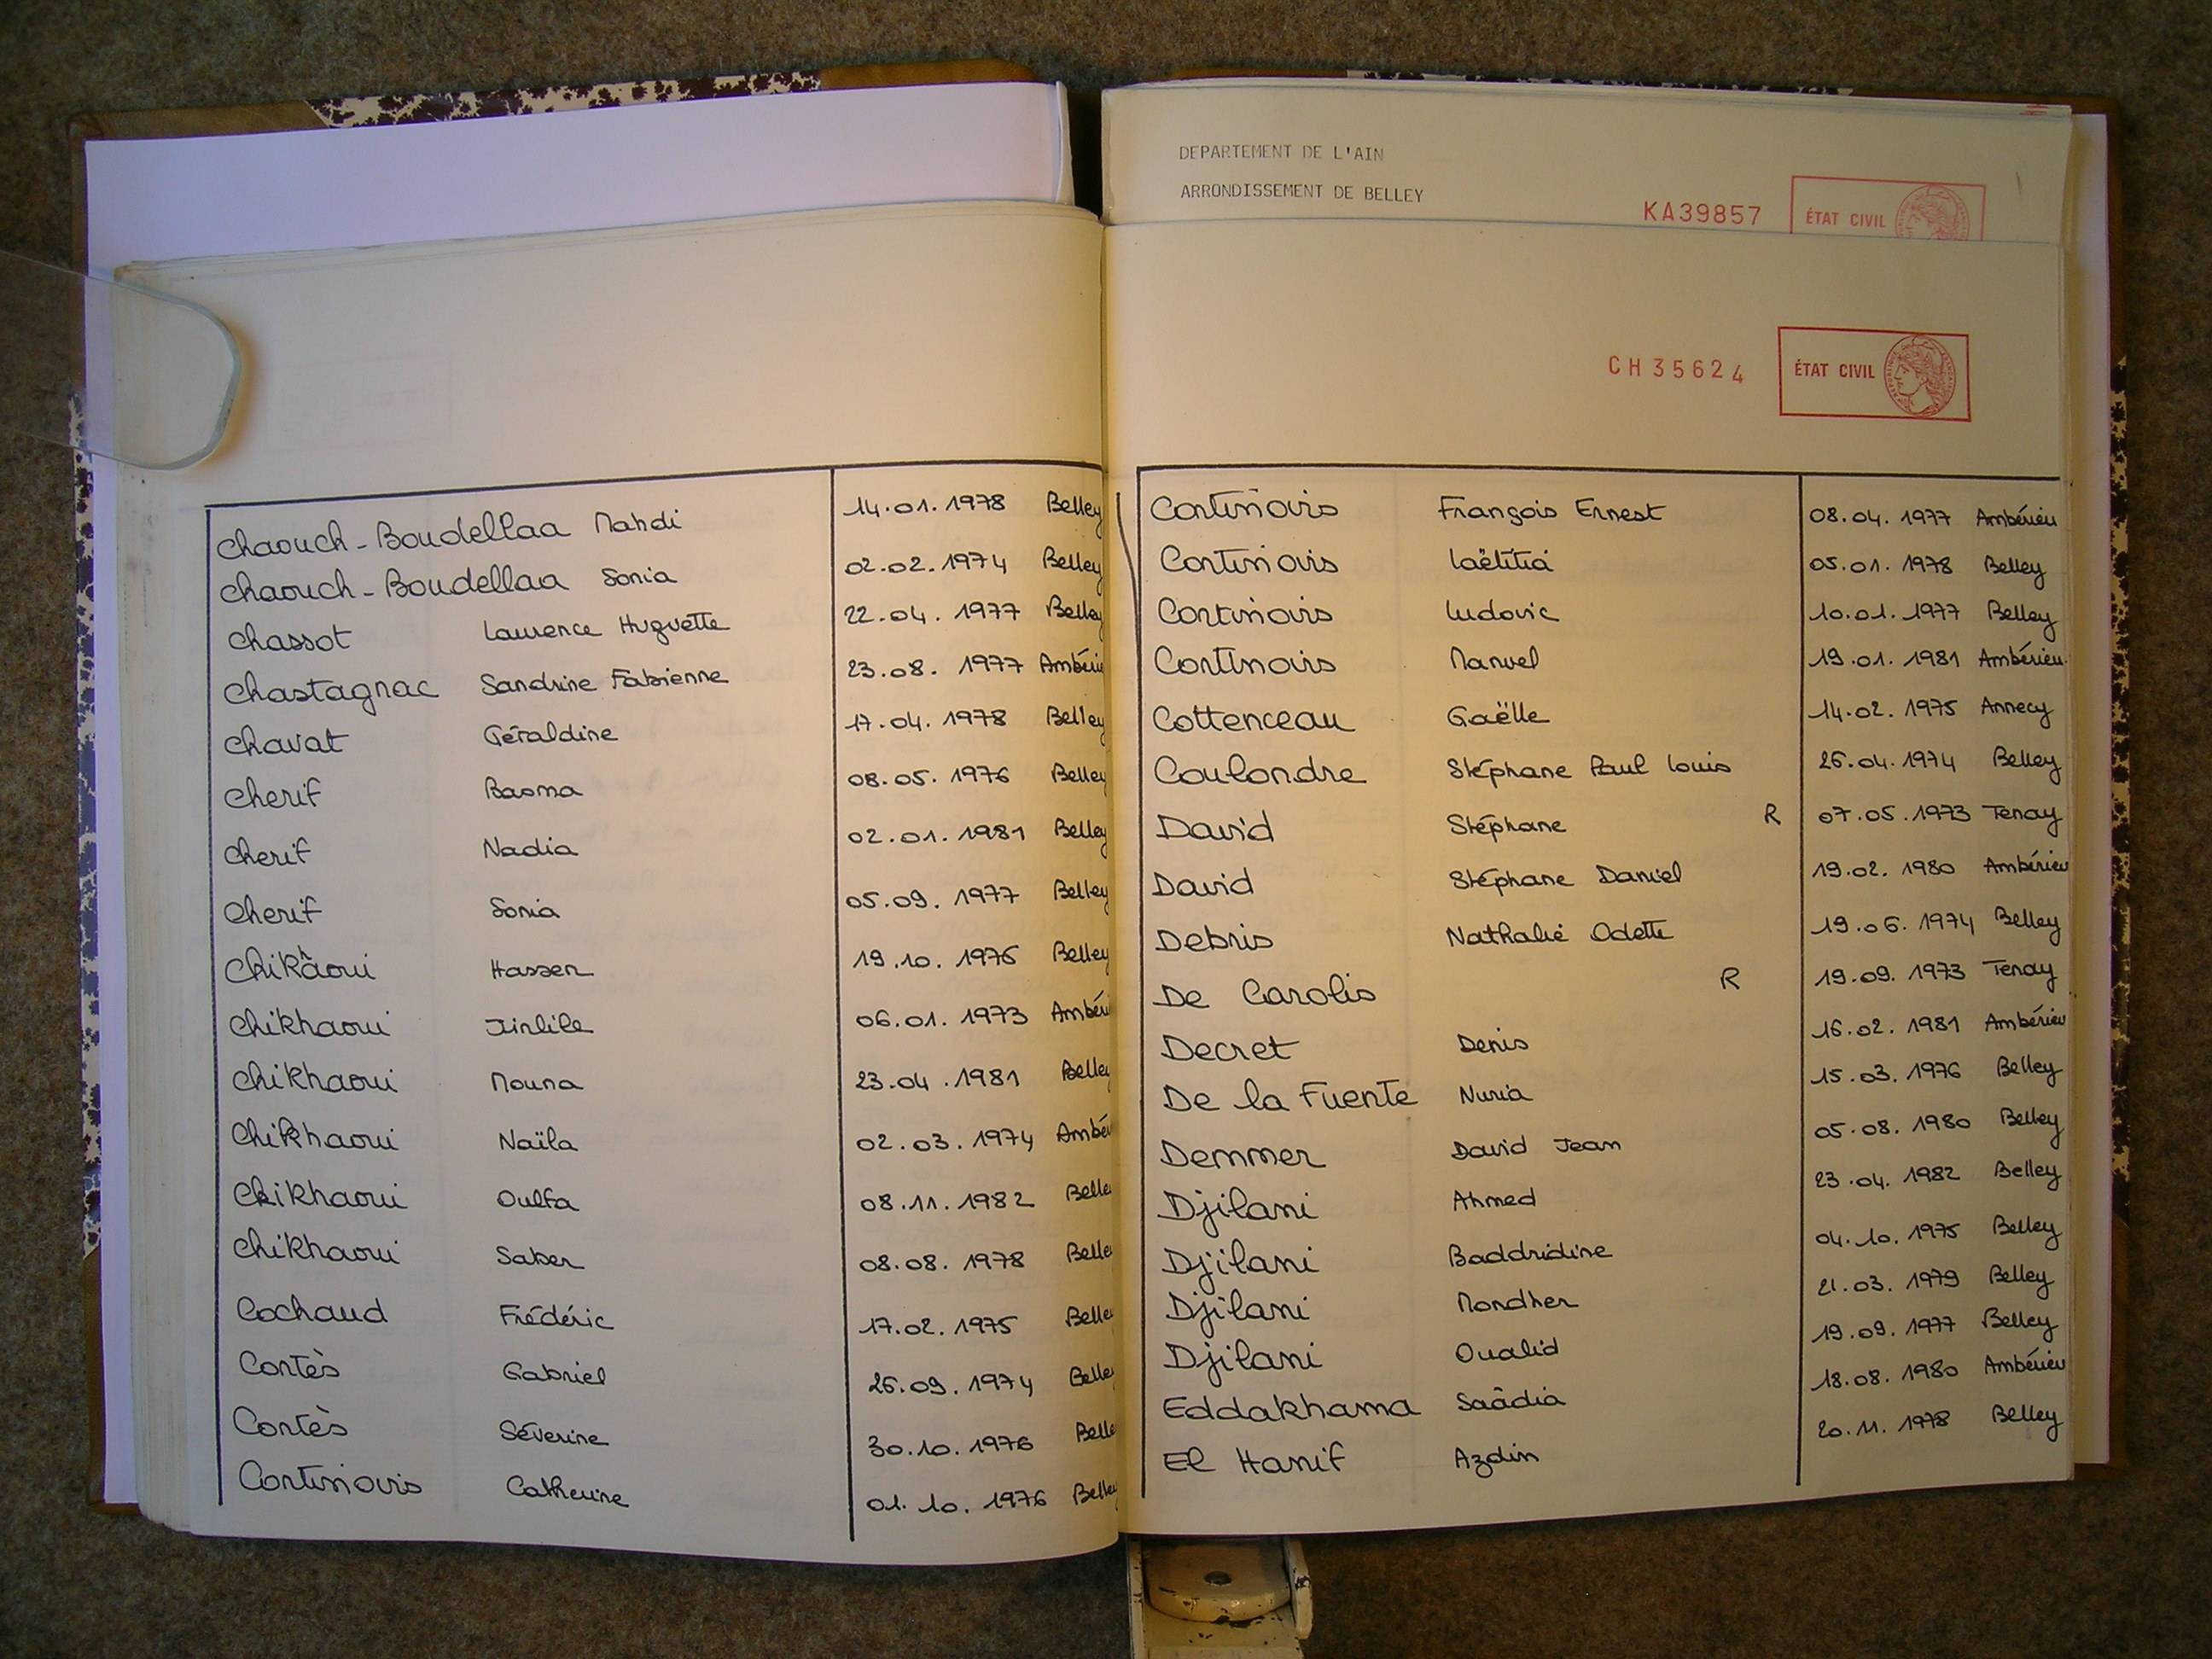 DEPARTEMENT DE L'AIN
ARRONDISSEMENT DE BELLEY
KA39857 ÉTAT CIVIL
CH35624 ÉTAT CIVIL
Chaouch-Boudellaa Mahdi 14.01.1978 Belley
Chaouch-Boudellaa Sonia 02.02.1974 Belley
Chassot Laurence Huguette 22.04.1977 Belley
Chastagnac Sandrine Fabienne 23.08.1977 Ambérie
Chavat Géraldine 17.04.1978 Belley
Cherif Basma 08.05.1976 Belley
Cherif Nadia 02.01.1981 Belley
Cherif Sonia 05.09.1977 Belley
Chikàoui Hassen 19.10.1976 Belley
Chikhaoui 06.01.1973 Ambéri
Chikhaoui Mouna 23.04.1981 Belley
Chikhaoui Naïla 02.03.1974 Ambé
Chikhaoui Oulfa 08.11.1982 Belle
Chikhaoui Saber 08.08.1978 Belle
Cochaud Frédéric 17.02.1975 Belle
Cortès Gabriel 26.09.1974 Belley
Cortès Séverine 30.10.1976 Belle
Cortinovis Catherine 01.10.1976 Belley
Cortinovis François Ernest 08.04.1977 Ambérieu
Cortinovis Laëtitia 05.01.1978 Belley
Cortinovis Ludovic 10.01.1977 Belley
Cortinovis Manuel 19.01.1981 Ambérieu
Cottenceau Gaëlle 14.02.1975 Annecy
Coulondre Stéphane Paul Louis 26.04.1974 Belley
David Stéphane R 07.05.1973 Tenay
David Stéphane Daniel 19.02.1980 Ambérieu
Debris Nathalie Odette 19.06.1974 Belley
De Carolis R 19.09.1973 Tenay
Decret Denis 16.02.1981 Ambérieu
De la Fuente Nuria 15.03.1976 Belley
Demmer David Jean 05.08.1980 Belley
Djilani Ahmed 23.04.1982 Belley
Djilani Baddridine 04.10.1975 Belley
Djilani Mondher 21.03.1979 Belley
Djilani Oualid 19.09.1977 Belley
Eddakhama Saâdia 18.08.1980 Ambérieu
El Hanif Azdin 20.11.1978 Belley